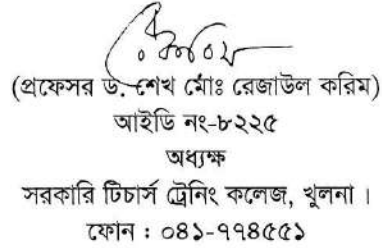 (প্রফেসর ড. শেখ মোঃ রেজাউল করিম)
আইডি নং-৮২২৫
অধ্যক্ষ
সরকারি টিচার্স ট্রেনিং কলেজ, খুলনা ।
ফোন : ০৪১-৭৭৪৫৫১